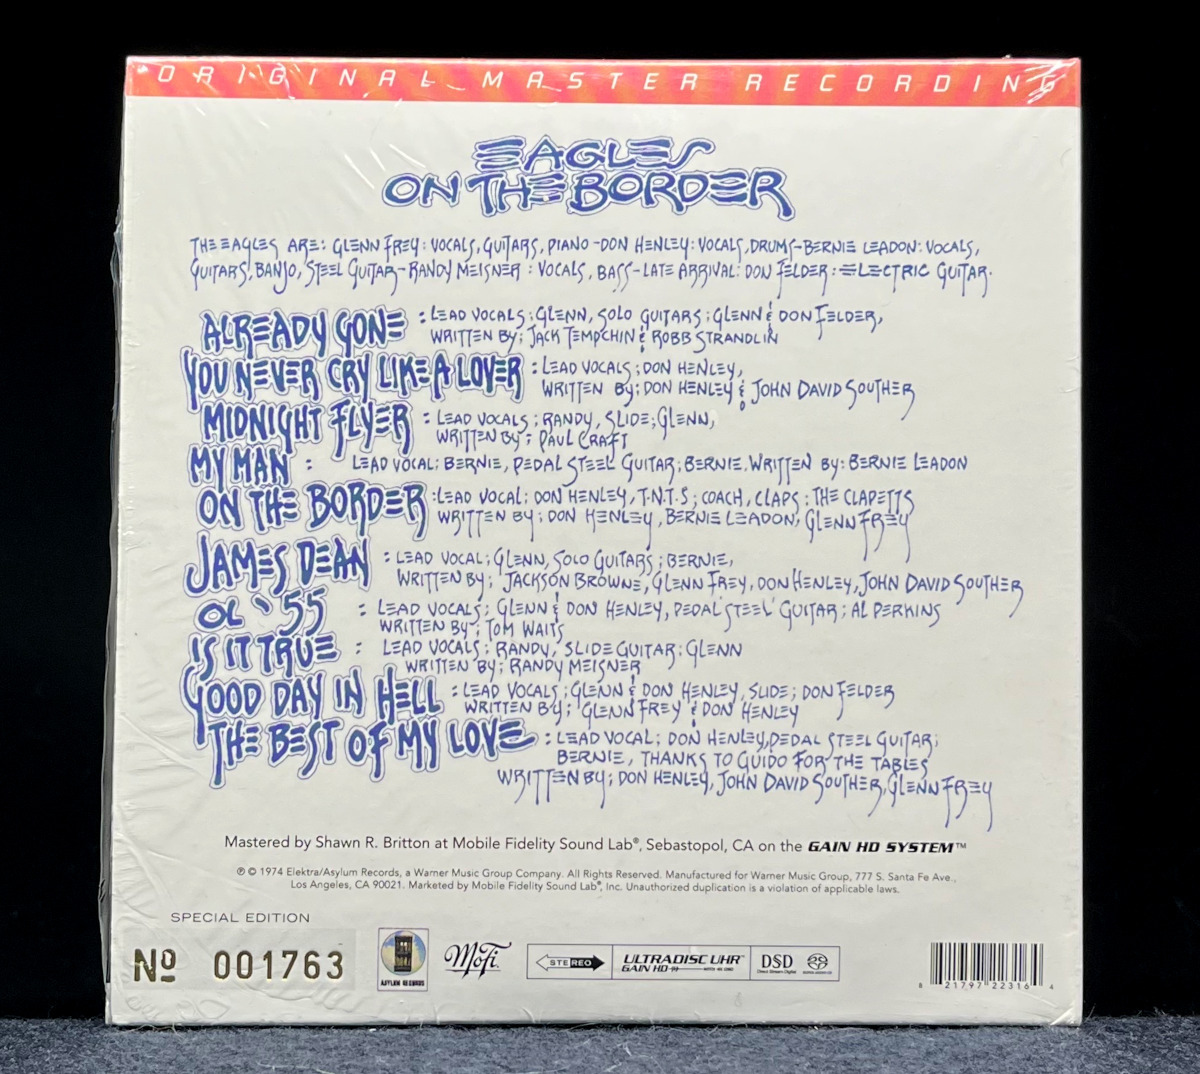 ORIGINAL MASTER RECORDING
EAGLES
ON THE BORDER
THE EAGLES ARE: GLENN FREY: VOCALS, GUITARS, PIANO - DON HENLEY: VOCALS, DRUMS - BERNIE LEADON: VOCALS,
GUITARS, BANJO, STEEL GUITAR - RANDY MEISNER : VOCALS, BASS - LATE ARRIVAL: DON FELDER : ELECTRIC GUITAR.
ALREADY GONE : LEAD VOCALS; GLENN, SOLO GUITARS; GLENN & DON FELDER,
WRITTEN BY; JACK TEMPCHIN & ROBB STRANDLIN
YOU NEVER CRY LIKE A LOVER : LEAD VOCALS; DON HENLEY,
WRITTEN BY: DON HENLEY & JOHN DAVID SOUTHER
MIDNIGHT FLYER : LEAD VOCALS; RANDY, SLIDE; GLENN,
WRITTEN BY; PAUL CRAFT
MY MAN : LEAD VOCAL; BERNIE, PEDAL STEEL GUITAR; BERNIE, WRITTEN BY: BERNIE LEADON
ON THE BORDER : LEAD VOCAL; DON HENLEY, T.N.T.S; COACH, CLAPS : THE CLAPETTS
WRITTEN BY; DON HENLEY, BERNIE LEADON, GLENN FREY
JAMES DEAN : LEAD VOCAL; GLENN, SOLO GUITARS; BERNIE,
WRITTEN BY; JACKSON BROWNE, GLENN FREY, DON HENLEY, JOHN DAVID SOUTHER
OL '55 : LEAD VOCALS; GLENN & DON HENLEY, PEDAL STEEL GUITAR; AL PERKINS
WRITTEN BY; TOM WAITS
IS IT TRUE : LEAD VOCALS; RANDY, SLIDE GUITAR; GLENN
WRITTEN BY; RANDY MEISNER
GOOD DAY IN HELL : LEAD VOCALS; GLENN & DON HENLEY, SLIDE; DON FELDER
WRITTEN BY; GLENN FREY & DON HENLEY
THE BEST OF MY LOVE : LEAD VOCAL; DON HENLEY, PEDAL STEEL GUITAR;
BERNIE, THANKS TO GUIDO FOR THE TABLES
WRITTEN BY; DON HENLEY, JOHN DAVID SOUTHER, GLENN FREY
Mastered by Shawn R. Britton at Mobile Fidelity Sound Lab®, Sebastopol, CA on the GAIN HD SYSTEM™
℗ © 1974 Elektra/Asylum Records, a Warner Music Group Company. All Rights Reserved. Manufactured for Warner Music Group, 777 S. Santa Fe Ave.,
Los Angeles, CA 90021. Marketed by Mobile Fidelity Sound Lab®, Inc. Unauthorized duplication is a violation of applicable laws.
SPECIAL EDITION
Nº 001763
ASYLUM RECORDS
MoFi
STEREO
ULTRADISC UHR™
GAIN HD
DSD
Direct Stream Digital
8 21797 22316 4